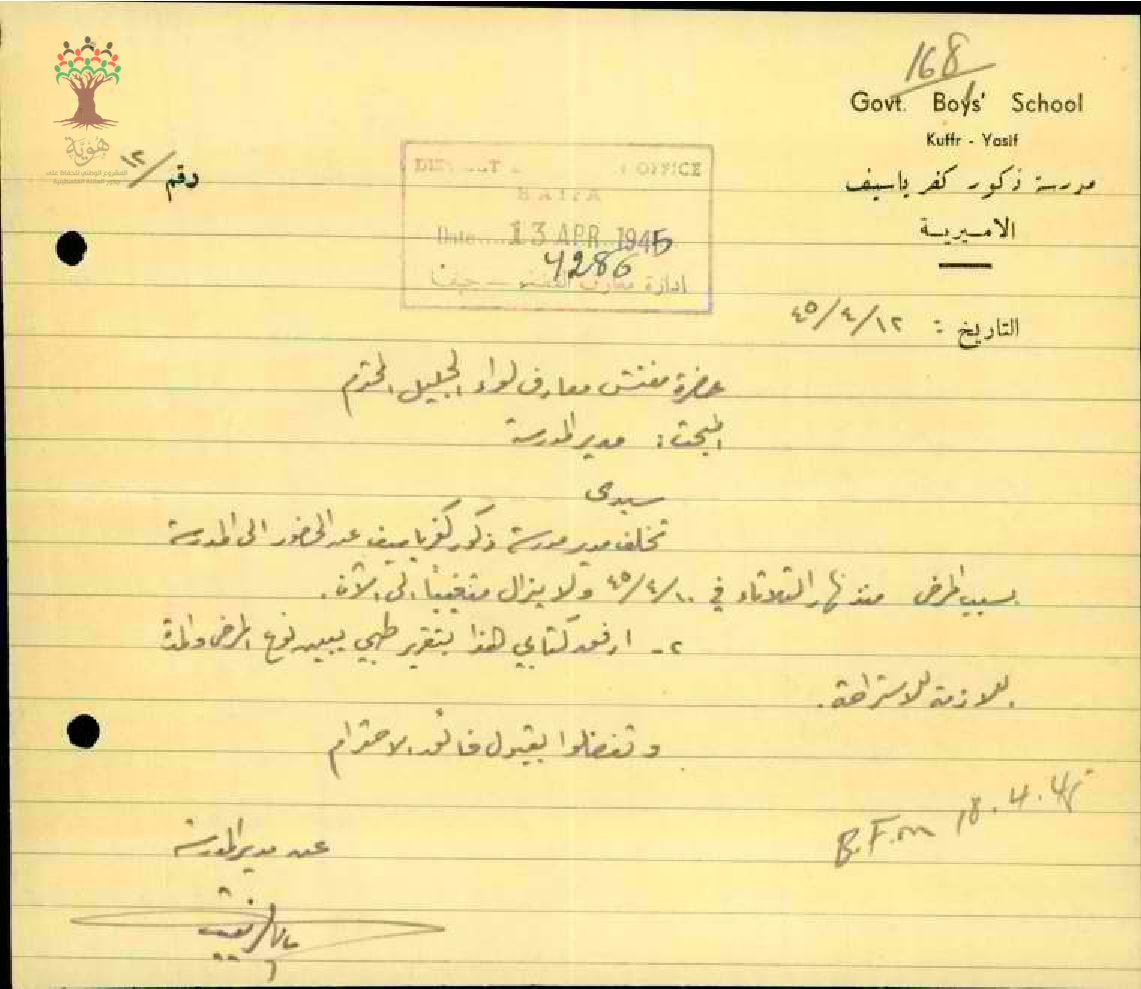 168
Govt. Boys' School
Kuffr - Yasif
مدرسة ذكور كفر ياسيف
الاميرية
هوية
رقم /١٢
OFFICE
HAIFA
Date 13 APR 1945
4286
ادارة معارف - حيفا
التاريخ : ٤٥/٤/١٢
حضرة مفتش معارف لواء الجليل المحترم
المبحث: مدير المدرسة
سيدي
تخلف مدير مدرسة ذكور كفر ياسيف عن الحضور الى المدرسة
بسبب المرض منذ نهار الثلاثاء في ٤٥/٤/١٠ ولا يزال متغيبا الى الآن.
٢- ارفق كتابي هذا بتقرير طبي يبين نوع المرض والمدة
اللازمة للاستراحة.
وتفضلوا بقبول فائق الاحترام
B.F.m 18.4.45
عن مدير المدرسة